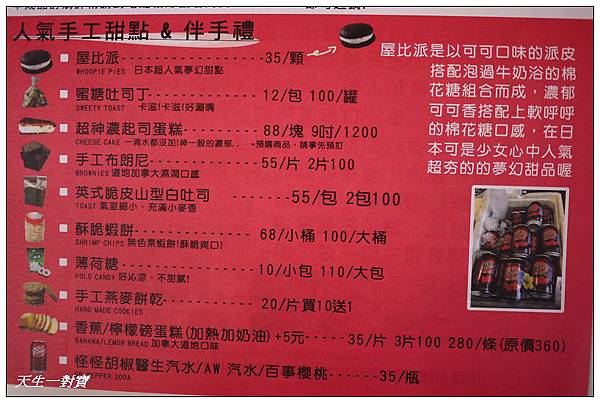 人氣手工甜點 & 伴手禮
屋比派-----------------35/顆
WHOOPIE PIES 日本超人氣夢幻甜點
蜜糖吐司丁------------12/包 100/罐
SWEETY TOAST 卡滋!卡滋!好涮嘴
超神濃起司蛋糕--------88/塊 9吋/1200
CHEESE CAKE 一滴水都沒加!神一般的濃郁.. *預購商品,請事先預訂
手工布朗尼-----------55/片 2片100
BROWNIES 道地加拿大濕潤口感
英式脆皮山型白吐司 -------55/包 2包100
TOAST 氣室細小、充滿小麥香
酥脆蝦餅-------------- 68/小桶 100/大桶
SHRIMP CHIPS 無色素蝦餅!酥脆爽口!
薄荷糖---------------10/小包 110/大包
POLO CANDY 好沁涼,不甜膩!
手工燕麥餅乾--------- 20/片買10送1
HAND MADE COOKIES
香蕉/檸檬磅蛋糕(加熱加奶油)+5元-----35/片 3片100 280/條(原價360)
BANANA/LEMON BREAD 加拿大道地口味
怪怪胡椒醫生汽水/AW 汽水/百事櫻桃------35/瓶
PEPPER SODA
屋比派是以可可口味的派皮
搭配泡過牛奶浴的棉
花糖組合而成,濃郁
可可香搭配上軟呼呼
的棉花糖口感,在日
本可是少女心中人氣
超夯的的夢幻甜品喔
天生一對寶